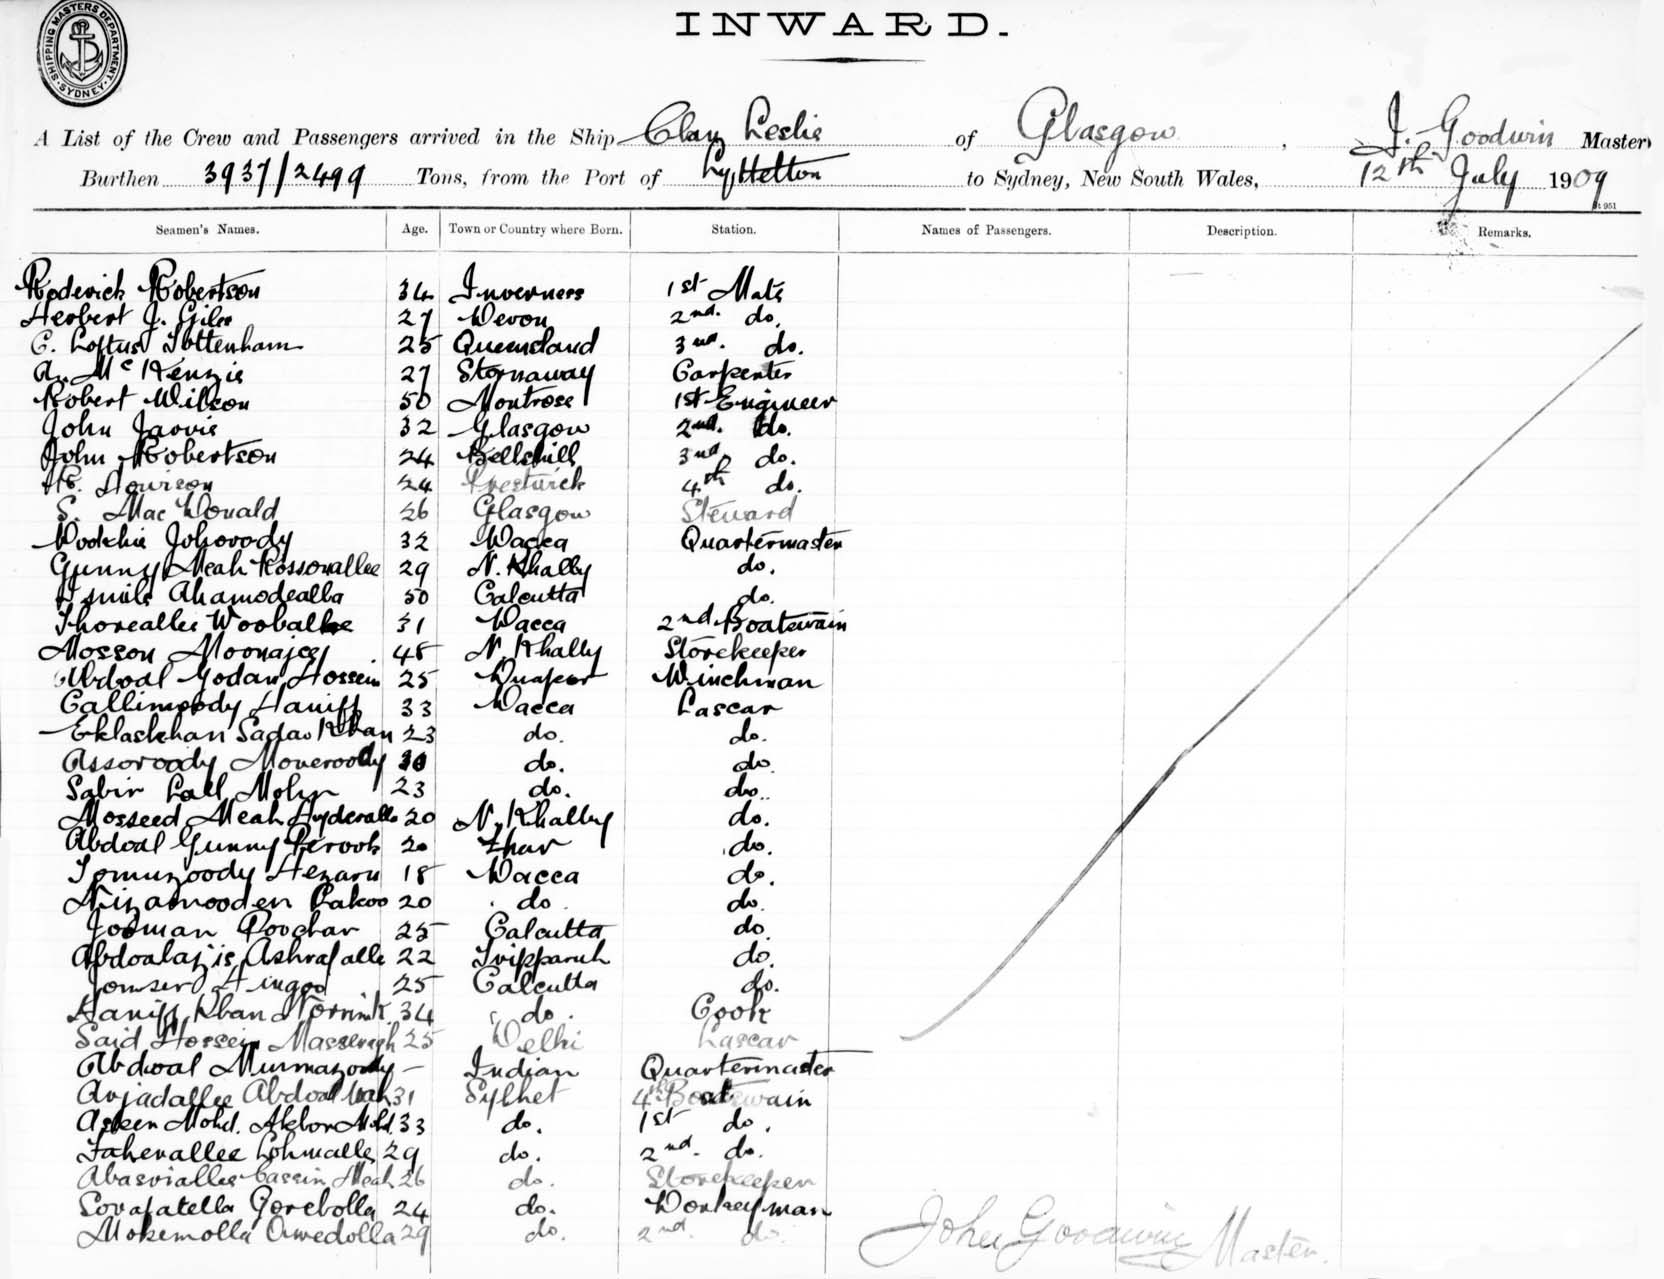 SHIPPING MASTERS DEPARTMENT. SYDNEY.
INWARD.
A List of the Crew and Passengers arrived in the Ship Clan Leslie of Glasgow, J. Goodwin Master
Burthen 3937/2499 Tons, from the Port of Lyttelton to Sydney, New South Wales, 12th July 1909
Seamen's Names. Age. Town or Country where Born. Station. Names of Passengers. Description. Remarks.
Roderick Robertson 34 Inverness 1st Mate
Herbert J. Giles 27 Devon 2nd. do.
C. Loftus Tottenham 25 Queensland 3rd. do.
A. McKenzie 27 Stornaway Carpenter
Robert Wilson 50 Montrose 1st Engineer
John Jarvis 32 Glasgow 2nd. do.
John Robertson 24 Bellshill 3rd do.
Howison 24 Prestwick 4th do.
S. MacDonald 26 Glasgow Steward
Johorody 32 Dacca Quartermaster
Gunny Meah Kossorallee 29 N. Khally do.
Ismile Ahamodealla 50 Calcutta do.
Thoreallee Wooballee 31 Dacca 2nd Boatswain
Mosson Moonajee 45 N. Khally Storekeeper
Abdoal Godan Hossein 25 Winchman
Callimoody Haniff 33 Dacca Lascar
Eklaskhan Sadar Khan 23 do. do.
Assoroody Moneroody 30 do. do.
Sabir Lall Mohn 23 do. do.
Mosseed Meah Hyderalle 20 N. Khally do.
Abdoal Gunny 20 do.
Tomuzoody Hezaru 18 Dacca do.
Nizamooden Pakoo 20 do. do.
Jooman Poochar 25 Calcutta do.
Abdoalajis Ashrafalle 22 Tripparah do.
Jomser 25 Calcutta do.
Haniff Khan 34 do. Cook
Said Hossein 25 Delhi Lascar
Abdoal Murmazoody – Indian Quartermaster
Arjadallee Abdoal Wah 31 Sylhet 4th Boatswain
Asken Mohd. Akbor Mohd. 33 do. 1st do.
Fahenallee Lohmalle 29 do. 2nd. do.
Abasriallee Cassin Meah 26 do. Storekeeper
Sovafatella Gorebolla 24 do. Donkeyman
Mokemolla Amedolla 29 do. 2nd do.
John Goodwin Master.